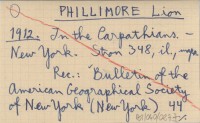 PHILLIMORE Lion
1912. In the Carpathians. -
New York. Stron 348, il,
Rec.: "Bulletin of the
American Geographical Society
of New York (New York) 44